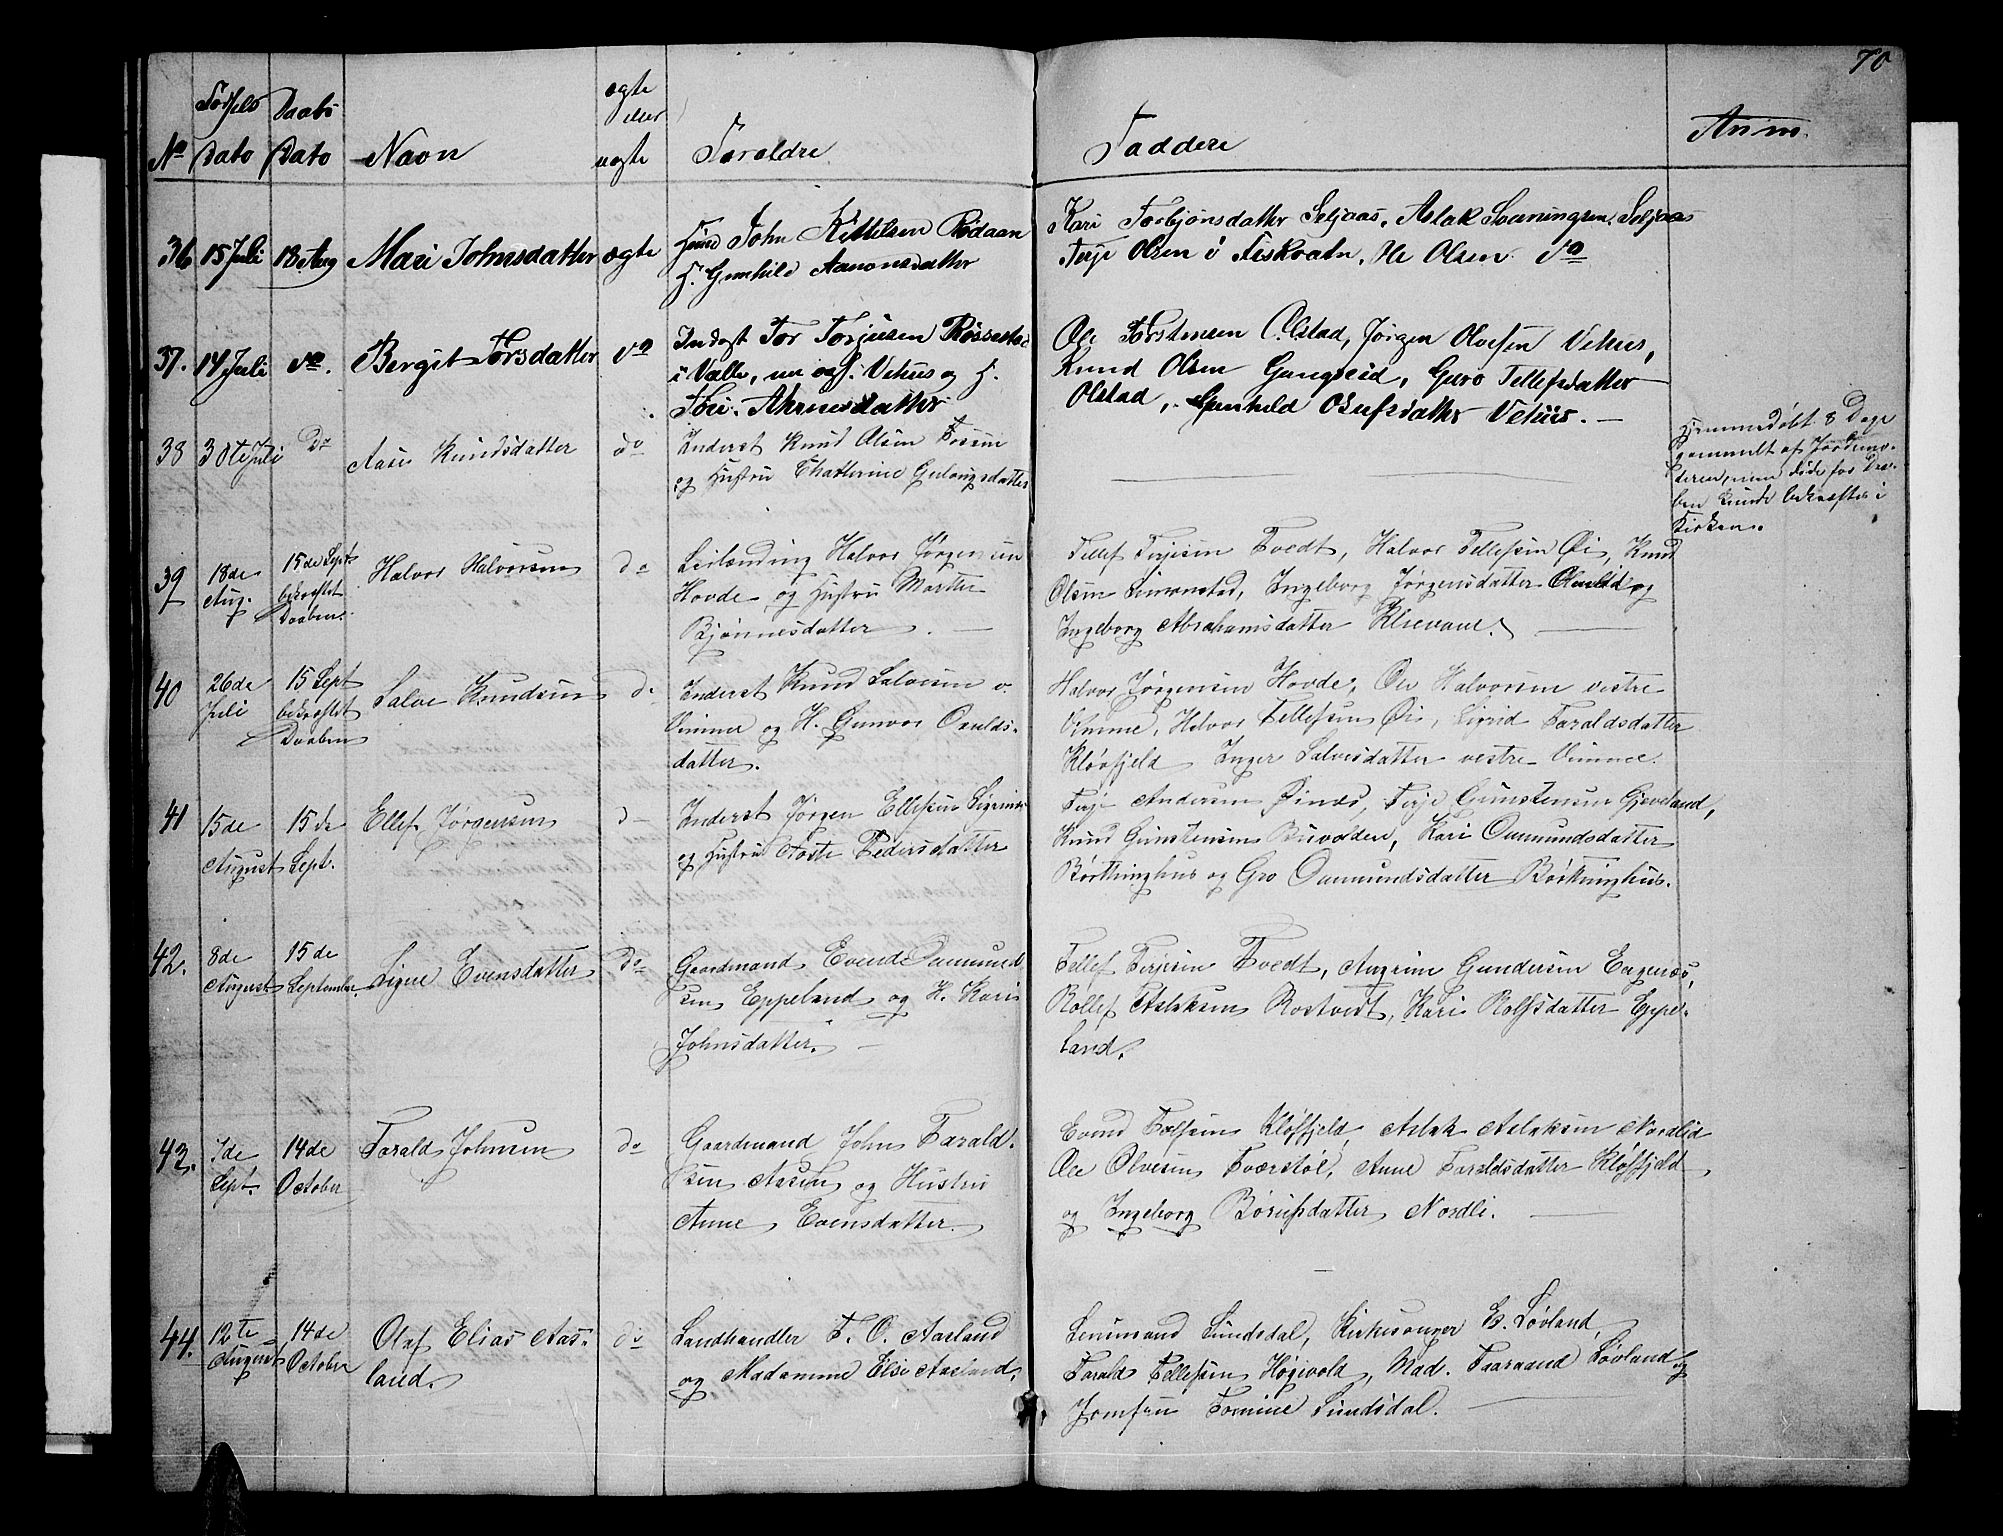 70
Fødsels Daabs ægte eller
No Dato Dato Navn uægte Forældre Faddere Anm.
36 15 Juli 18 Aug Mari Johnsdatter ægte John Kittilsen Rødaan
H. Gunhild Aanonsdatter
Kari Torbjønsdatter Seljaas, Aslak Sveningsen Seljaas
Terje Olsen i Fiskvatn, Ole Olsen do
37. 14 Juli do. Bergit Torsdatter do Inderst Tor Torjusen Røssestad
i Valle, nu og f. Vehus og H.
Tori Aanensdatter
Ole Torstensen Olstad, Jørgen Olvesen Vehus,
Knud Olsen Gangseid, Guro Tellefsdatter
Olstad, Gunhild Osufsdatter Vehus.
38 30te Juli Do Aase Knudsdatter do Inderst Knud Olsen Fossen
og Hustru Thatterine Gulougsdatter
Hjemmedøbt 8 Dage
gammelt af Jordemo-
deren, men døde før Daa-
ben kunde bekræftes i
Kirken.
39 18de Aug. 15de Sept. bekræftet Daaben. Halvor Halvorsen do Leilænding Halvor Jørgensen
Hovde og Hustru Marthe
Bjønnesdatter.
Tellef Terjesen Tvedt, Halvor Tellefsen Øi, Knud
Olsen Simonstad, Ingeborg Jørgensdatter og
Ingeborg Abrahamsdatter Klievane.
40 26de Juli 15 Sept bekræftet Daaben Salve Knudsen do Inderst Knud Salvesen v.
Vimme og H. Gunvor Osulds-
datter.
Halvor Jørgensen Hovde, Ole Halvorsen vestre
Vimme, Halvor Tellefsen Øi, Sigrid Taraldsdatter
Kløvfjeld Inger Salvesdatter vestre Vimme.
41 15de August 15de Sept. Ellef Jørgensen d- Inderst Jørgen Ellefsen
og Hustru Aaste Pedersdatter
Terje Andersen Øinæs, Terje Gunstensen Gjeveland,
Knud Gunstensen Buvolden, Kari Oumundsdatter
Børkinghus og Gro Oumundsdatter Børkinghus.
42. 8de August 15de September Signe Evensdatter Do Gaardmand Evend Oumund-
sen Eppeland og H. Kari
Johnsdatter.
Tellef Terjesen Tvedt, Angrim Gundersen Engenæs,
Rollef Aslaksen Rostveit, Kari Rolfsdatter Eppe-
land.
43. 7de Sept. 14de October Tarald Johnsen do Gaardmand John Tarald-
sen Aasen og Hustru
Anne Evensdatter.
Evend Kløvfjeld, Aslak Aslaksen Nordlid
Ole Olvesen Tværstøl, Anne Taraldsdatter Kløvfjeld
og Ingeborg Børufsdatter Nordli.
44. 12te August 14de October Olaf Elias Aas-
land. do Landhandler T. O. Aasland
og Madamme Else Aasland.
Lensmand Sundsdal, Kirkesanger E. Løvland,
Tarald Tellefsen Høgevold, Mad. Taaraand Løvland og
Jomfru Tomine Sundsdal.